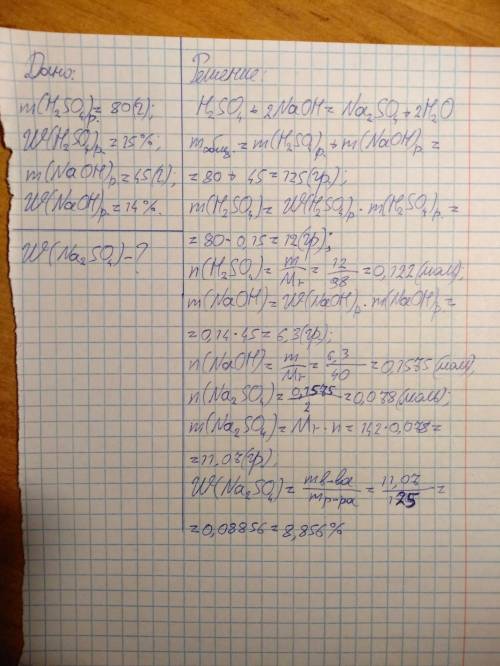 Дано:
m(H₂SO₄)р.= 80(г);
W(H₂SO₄)р.= 15%;
m(NaOH)р=45(г);
W(NaOH)р.=14%.
W(Na₂SO₄)-?
Решение:
H₂SO₄+2NaOH=Na₂SO₄+2H₂O
mобщ.=m(H₂SO₄)р.+m(NaOH)р=
=80+45=125(гр);
m(H₂SO₄)=W(H₂SO₄)р.·m(H₂SO₄)р.=
=80·0,15=12(гр);
n(H₂SO₄)=m/Mr=12/98=0,122(моль);
m(NaOH)=W(NaOH)р.·m(NaOH)р.=
=0,14·45=6,3(гр);
n(NaOH)=m/Mr=6,3/40=0,1575(моль);
n(Na₂SO₄)=0,1575/2=0,078(моль);
m(Na₂SO₄)=Mr·n=142·0,078=
=11,07(гр);
W(Na₂SO₄)=mв-ва/mр-ра=11,07/125=
=0,08856=8,856%